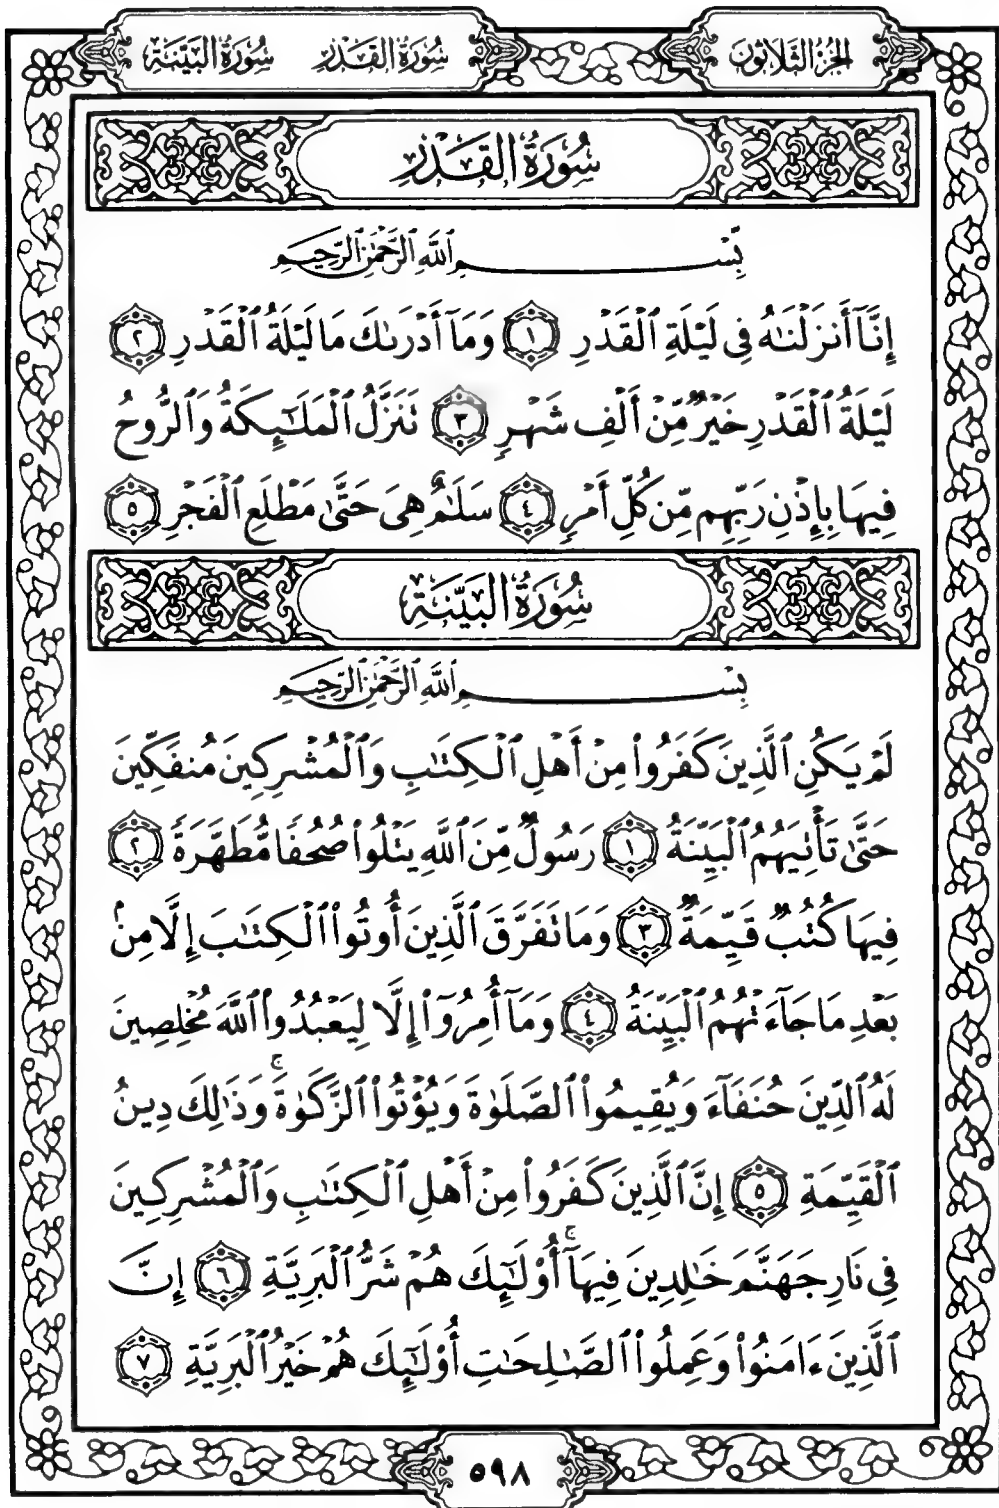 الجزء الثلاثون
سُورَةُ القَدْرِ سُورَةُ البَيِّنَةِ
سُورَةُ القَدْرِ
بِّسْمِ ٱللَّهِ ٱلرَّحْمَٰنِ ٱلرَّحِيمِ
إِنَّآ أَنزَلْنَٰهُ فِى لَيْلَةِ ٱلْقَدْرِ ١ وَمَآ أَدْرَىٰكَ مَا لَيْلَةُ ٱلْقَدْرِ ٢
لَيْلَةُ ٱلْقَدْرِ خَيْرٌ مِّنْ أَلْفِ شَهْرٍ ٣ تَنَزَّلُ ٱلْمَلَٰٓئِكَةُ وَٱلرُّوحُ
فِيهَا بِإِذْنِ رَبِّهِم مِّن كُلِّ أَمْرٍ ٤ سَلَٰمٌ هِىَ حَتَّىٰ مَطْلَعِ ٱلْفَجْرِ ٥
سُورَةُ البَيِّنَةِ
بِسْمِ ٱللَّهِ ٱلرَّحْمَٰنِ ٱلرَّحِيمِ
لَمْ يَكُنِ ٱلَّذِينَ كَفَرُوا۟ مِنْ أَهْلِ ٱلْكِتَٰبِ وَٱلْمُشْرِكِينَ مُنفَكِّينَ
حَتَّىٰ تَأْتِيَهُمُ ٱلْبَيِّنَةُ ١ رَسُولٌ مِّنَ ٱللَّهِ يَتْلُوا۟ صُحُفًا مُّطَهَّرَةً ٢
فِيهَا كُتُبٌ قَيِّمَةٌ ٣ وَمَا تَفَرَّقَ ٱلَّذِينَ أُوتُوا۟ ٱلْكِتَٰبَ إِلَّا مِنۢ
بَعْدِ مَا جَآءَتْهُمُ ٱلْبَيِّنَةُ ٤ وَمَآ أُمِرُوٓا۟ إِلَّا لِيَعْبُدُوا۟ ٱللَّهَ مُخْلِصِينَ
لَهُ ٱلدِّينَ حُنَفَآءَ وَيُقِيمُوا۟ ٱلصَّلَوٰةَ وَيُؤْتُوا۟ ٱلزَّكَوٰةَ ۚ وَذَٰلِكَ دِينُ
ٱلْقَيِّمَةِ ٥ إِنَّ ٱلَّذِينَ كَفَرُوا۟ مِنْ أَهْلِ ٱلْكِتَٰبِ وَٱلْمُشْرِكِينَ
فِى نَارِ جَهَنَّمَ خَٰلِدِينَ فِيهَآ ۚ أُو۟لَٰٓئِكَ هُمْ شَرُّ ٱلْبَرِيَّةِ ٦ إِنَّ
ٱلَّذِينَ ءَامَنُوا۟ وَعَمِلُوا۟ ٱلصَّٰلِحَٰتِ أُو۟لَٰٓئِكَ هُمْ خَيْرُ ٱلْبَرِيَّةِ ٧
٥٩٨